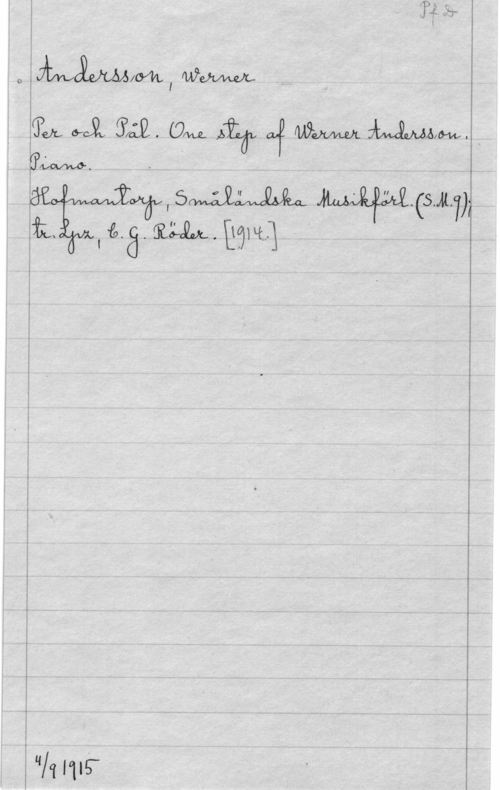 Pf. D
Andersson, Werner
Per och Pål. One step af Werner Andersson.
Piano.
Hofmantorp, Småländska Musikförl. (S.M.9);
tr. Lpz, C. G. Röder. [1914.]
4/9 1915